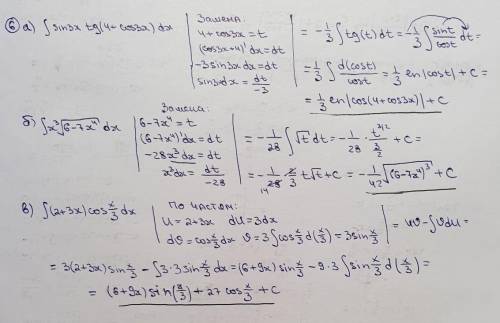 ⑥ a) ∫ sin3x tg(4+cos3x) dx
Замена:
4+cos3x = t
(cos3x+4)' dx = dt
-3 sin3x dx = dt
sin3x dx = dt/-3
= -1/3 ∫ tg(t) dt = -1/3 ∫ sint/cost dt =
= 1/3 ∫ d(cost)/cost = 1/3 ln|cost| + C =
= 1/3 ln|cos(4+cos3x)| + C
б) ∫ x³ √(6-7x⁴) dx
Замена:
6-7x⁴ = t
(6-7x⁴)' dx = dt
-28x³ dx = dt
x³dx = dt/-28
= -1/28 ∫ √t dt = -1/28 · t^(3/2)/(3/2) + C =
= -1/28 · 2/3 t√t + C = -1/42 √(6-7x⁴)³ + C
14
в) ∫ (2+3x) cos x/3 dx
по частям:
U = 2+3x dU = 3dx
dϑ = cos x/3 dx ϑ = 3∫ cos x/3 d(x/3) = 3sin x/3
= Uϑ - ∫ϑdU =
= 3(2+3x) sin x/3 - ∫ 3·3 sin x/3 dx = (6+9x) sin x/3 - 9·3 ∫ sin x/3 d(x/3) =
= (6+9x) sin(x/3) + 27 cos x/3 + C